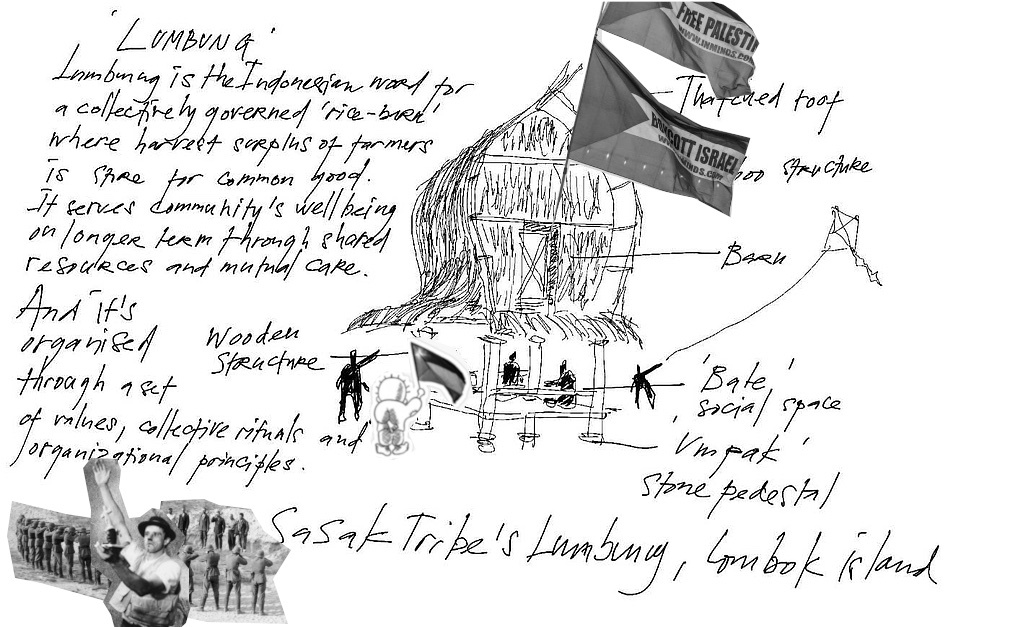 'LUMBUNG'
Lumbung is the Indonesian word for
a collectively governed 'rice-barn'
where harvest surplus of farmers
is store for common good.
It serves community's well being
on longer term through shared
resources and mutual care.
And it's
organised
through a set
of values, collective rituals and
organizational principles.
FREE PALESTIN
WWW.INMINDS.CO
BOYCOTT ISRAEL
Thatched roof
structure
Barn
Wooden
Structure
'Bale,'
social space
'Umpak'
Stone pedestal
Sasak Tribe's Lumbung, Lombok island